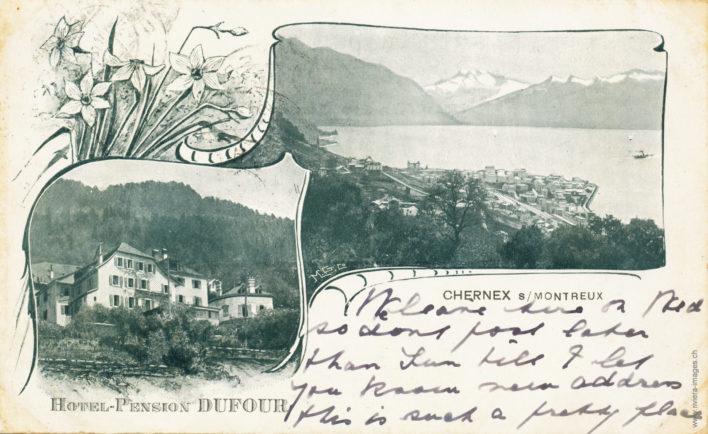 CHERNEX s/MONTREUX
We leave here on Wed
so dont post later
than Sun till I let
you know new address
this is such a pretty place
HOTEL-PENSION DUFOUR
www.riviera-images.ch